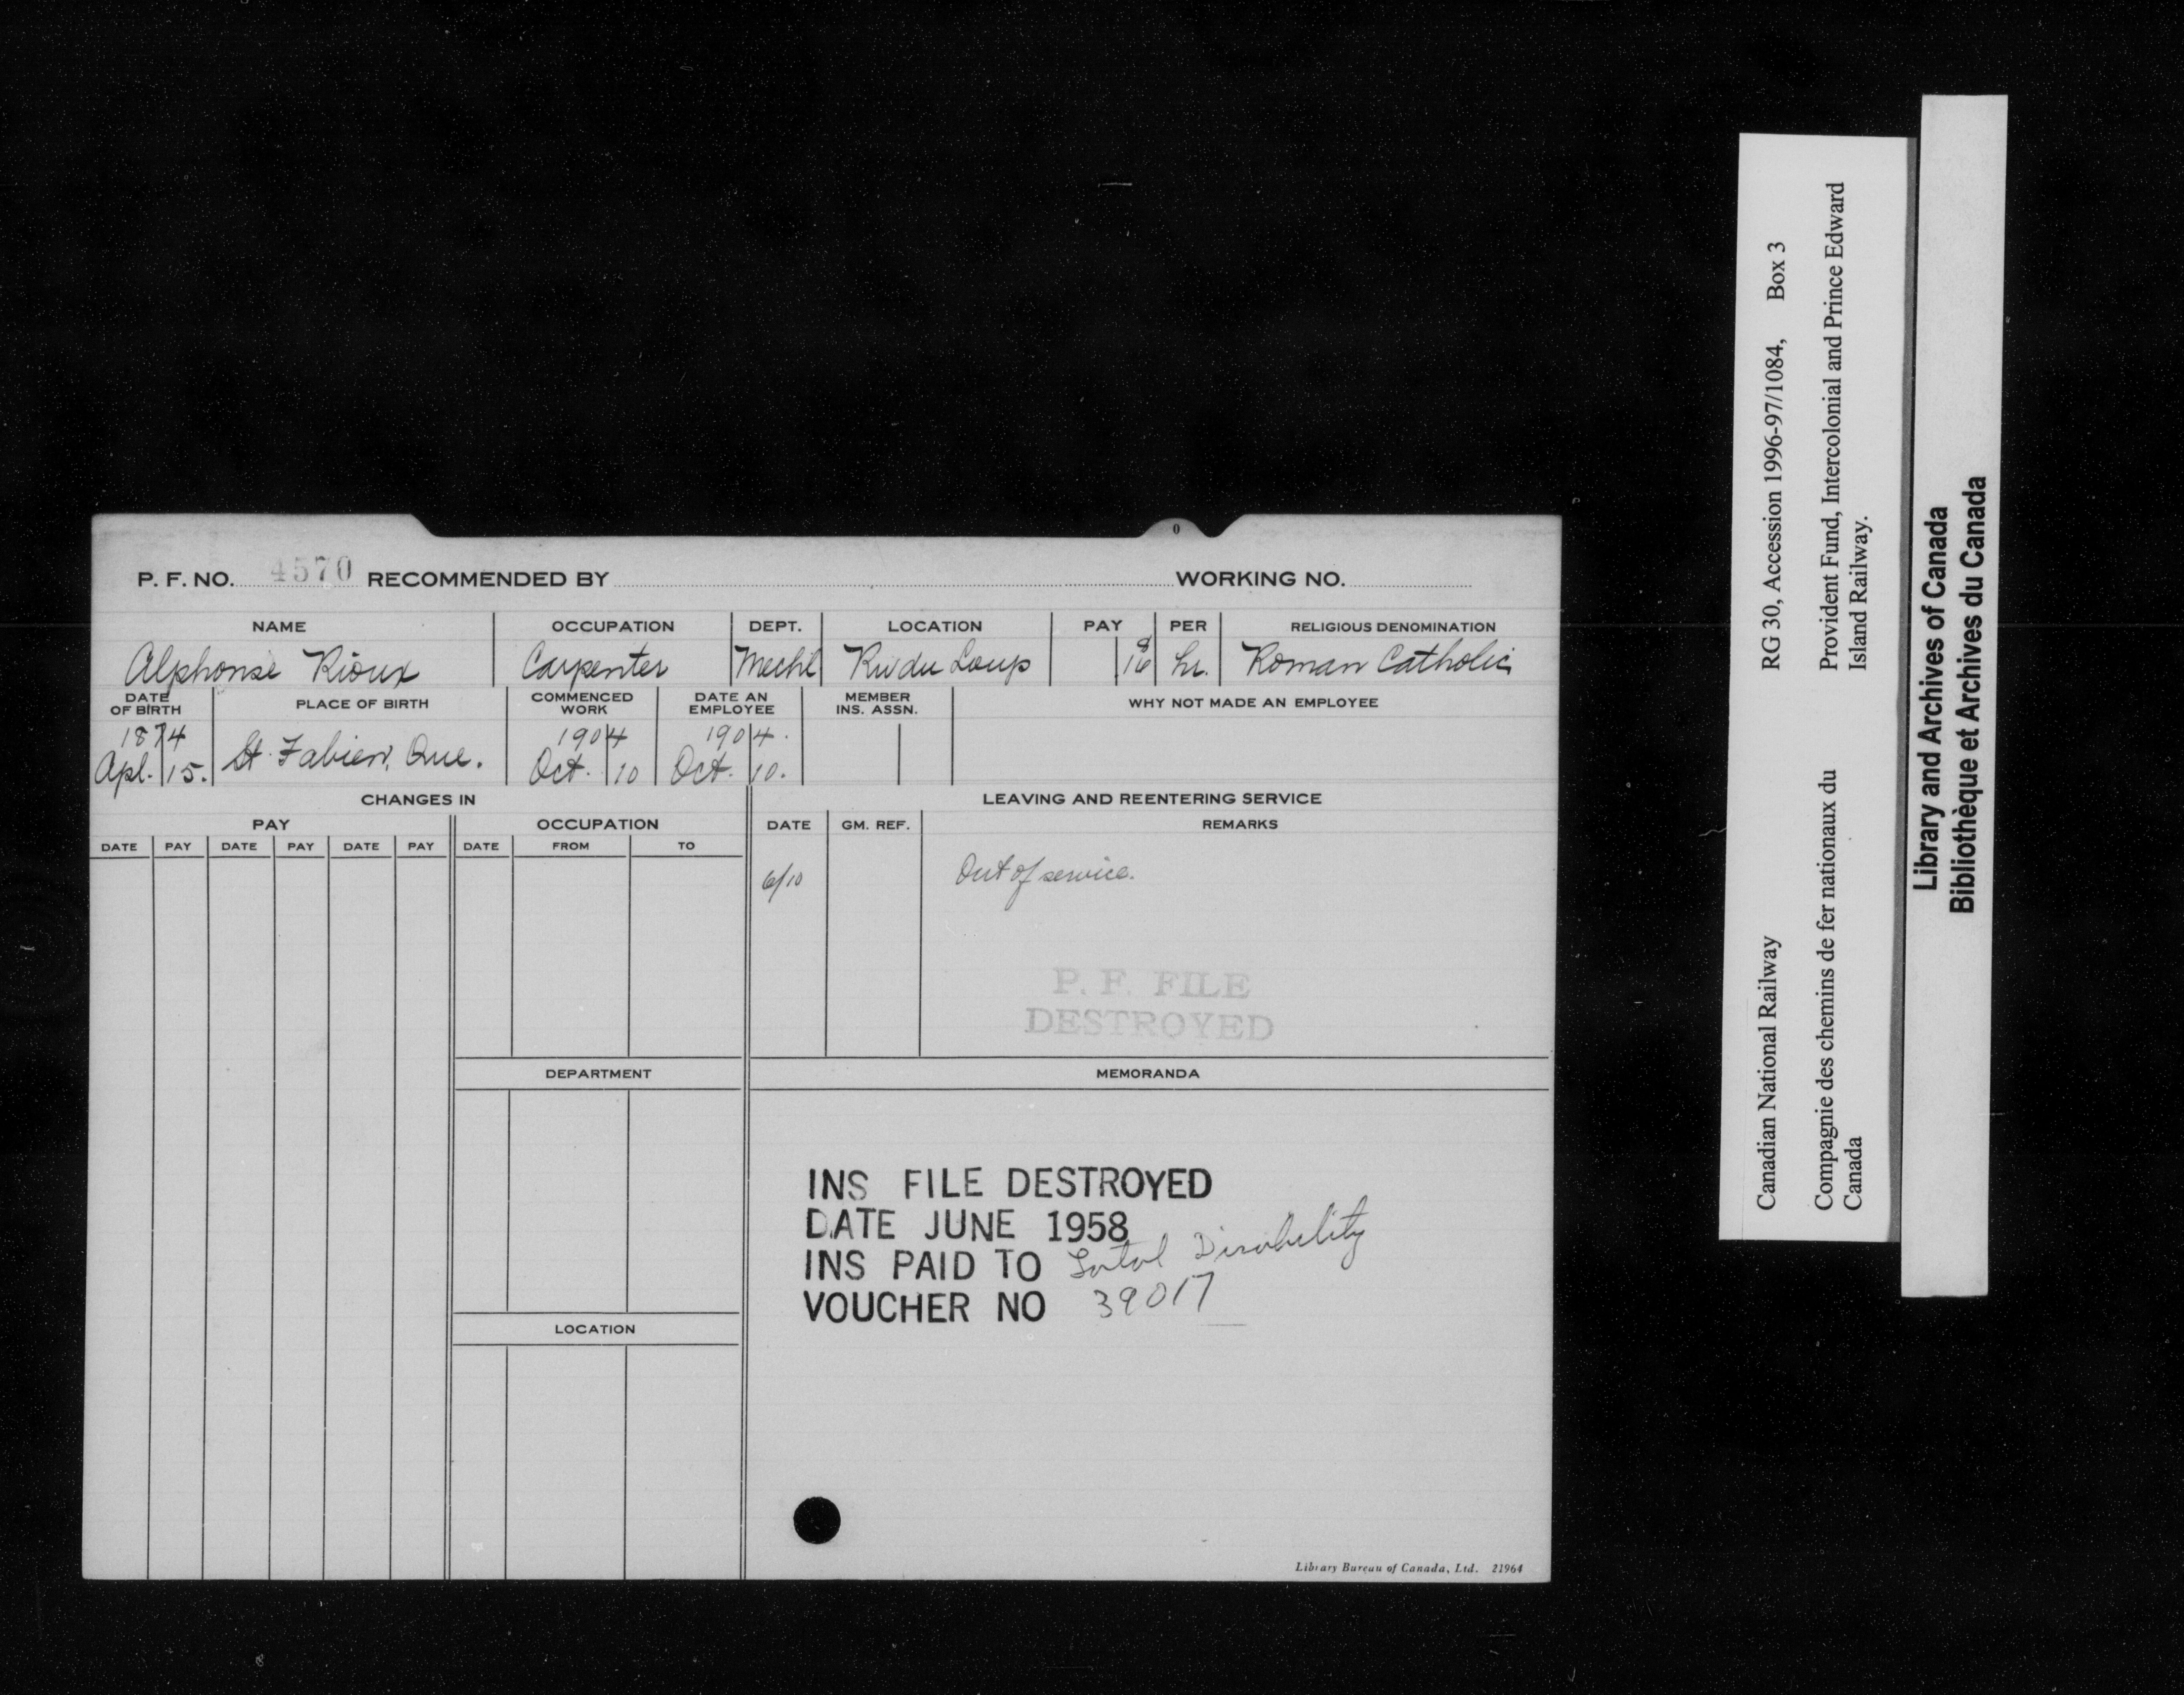 P. F. NO. 4570 RECOMMENDED BY WORKING NO.
0
NAME OCCUPATION DEPT. LOCATION PAY PER RELIGIOUS DENOMINATION
Alphonse Rioux Carpenter Mechl Riv du Loup 16 hr. Roman Catholic
DATE OF BIRTH PLACE OF BIRTH COMMENCED WORK DATE AN EMPLOYEE MEMBER INS. ASSN. WHY NOT MADE AN EMPLOYEE
1874 1904 1904.
Apl. 15. St. Fabien, Que. Oct. 10 Oct. 10.
CHANGES IN LEAVING AND REENTERING SERVICE
PAY OCCUPATION DATE GM. REF. REMARKS
DATE PAY DATE PAY DATE PAY DATE FROM TO
6/10 Out of service.
P. F. FILE
DESTROYED
DEPARTMENT MEMORANDA
INS FILE DESTROYED
DATE JUNE 1958
INS PAID TO Total Disability
VOUCHER NO 39017
LOCATION
Library Bureau of Canada, Ltd. 21964
Canadian National Railway RG 30, Accession 1996-97/1084, Box 3
Compagnie des chemins de fer nationaux du
Canada
Provident Fund, Intercolonial and Prince Edward
Island Railway.
Library and Archives of Canada
Bibliothèque et Archives du Canada